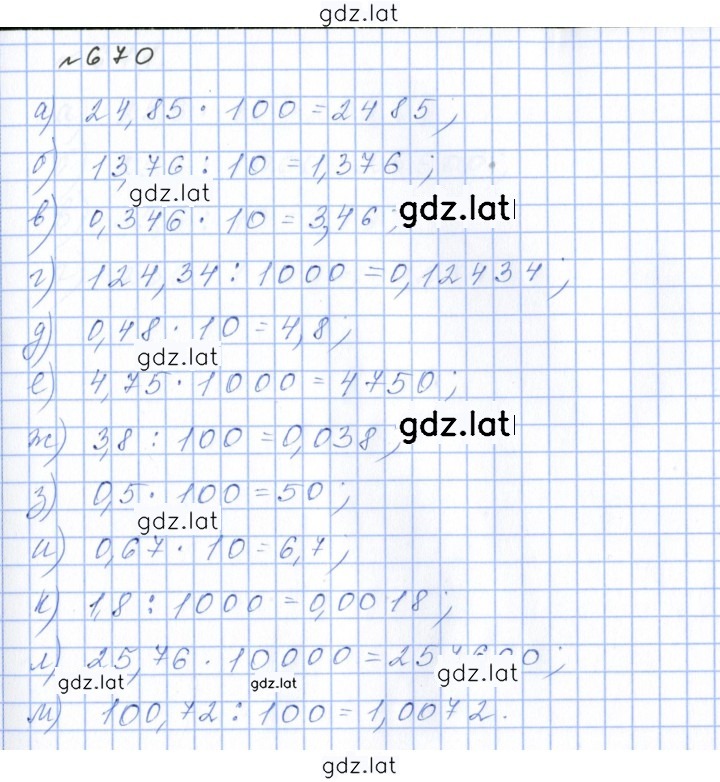 gdz.lat
№670
а) 24,85 · 100 = 2485;
б) 13,76 : 10 = 1,376;
gdz.lat
gdz.lat
в) 0,346 · 10 = 3,46;
г) 124,34 : 1000 = 0,12434;
д) 0,48 · 10 = 4,8;
gdz.lat
е) 4,75 · 1000 = 4750;
ж) 3,8 : 100 = 0,038;
gdz.lat
з) 0,5 · 100 = 50;
gdz.lat
и) 0,67 · 10 = 6,7;
к) 1,8 : 1000 = 0,0018;
л) 25,76 · 10000 = 257600;
gdz.lat
gdz.lat
gdz.lat
м) 100,72 : 100 = 1,0072.
gdz.lat